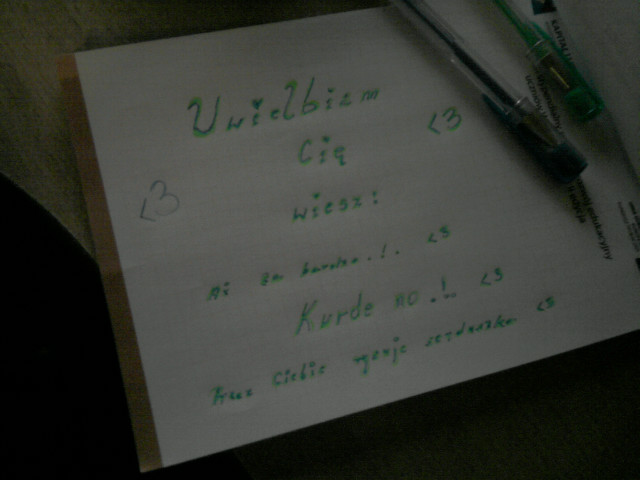 Uwielbiam
Cię <3
<3
wiesz:
Aż za bardzo.!. <3
Kurde no.!. <3
Przez Ciebie serduszko <3
edukacyjny